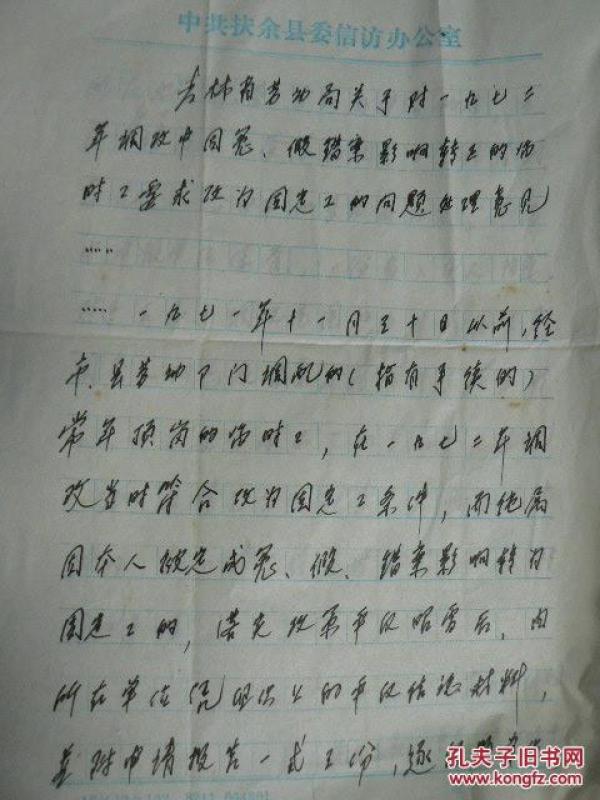 中共扶余县委信访办公室
吉林省劳动局关于对一九七二
年调改中因冤、假错案影响转正的临
时工要求改为固定工的问题处理意见
……
……一九七一年十一月三十日以前，经
市、县劳动部门调配的（指有手续的）
常年顶岗的临时工，在一九七二年调
改当时符合改为固定工条件，而纯属
因本人被定成冤、假、错案影响转为
固定工的，落实政策平反昭雪后，由
所在单位凭组织上的平反结论材料，
并附申请报告一式二份，逐
孔夫子旧书网
www.kongfz.com